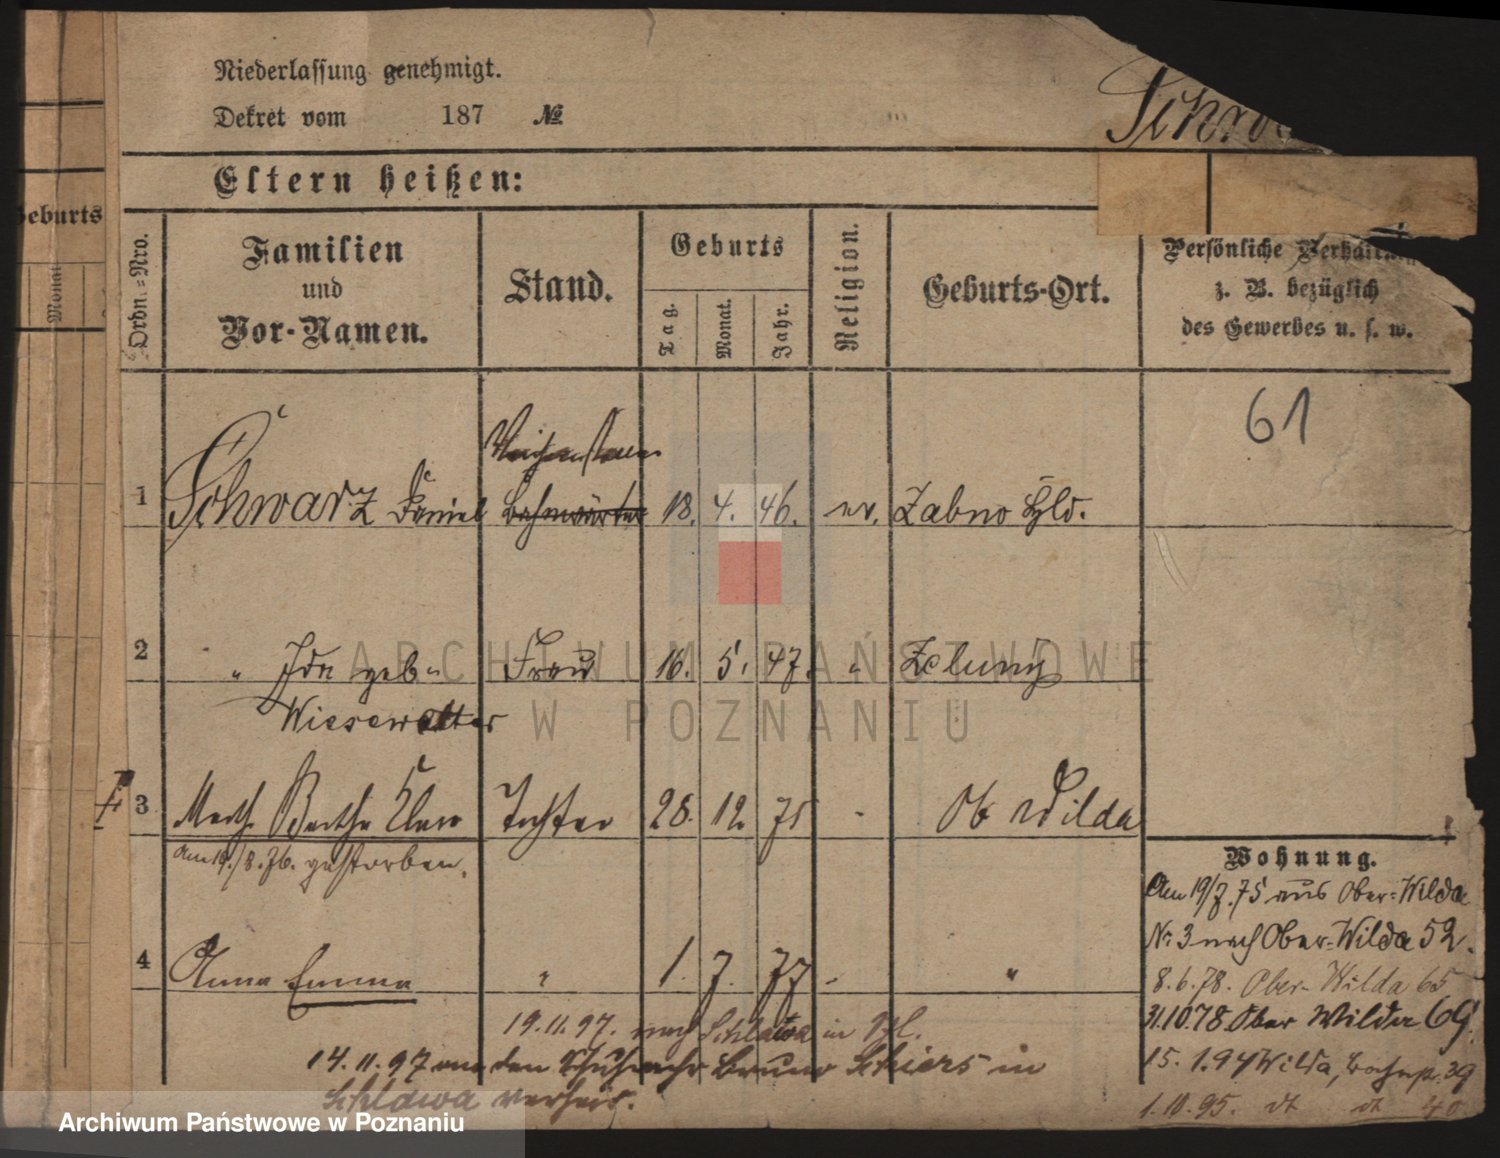 Niederlassung genehmigt.
Dekret vom 187 №
Eltern heißen:
Geburts
Monat
Ordn.=Nro.
Familien
und
Vor-Namen.
Stand.
Geburts
Tag.
Monat.
Jahr.
Religion.
Geburts-Ort.
Persönliche
z. B. bezüglich
des Gewerbes u. s. w.
61
1 Schwarz Daniel Bahnwärter 18. 4. 46. ev. Zabno
2 " Ida geb. Frau 16. 5. 47. "
Wiesewalter
3 Bertha Tochter 28. 12. 75 Ob Wilda
Am 19./8.76. gestorben.
4 Anna Emma " 1. 7. 77 "
19.11.97. nach Schlawa in
14.11.97 Bruno in
Schlawa verheir.
Wohnung.
Am 19/7.75 aus Ober-Wilda
Nr 3 nach Ober-Wilda 52.
8.6.78. Ober-Wilda 65
31.10.78. Ober Wilda 69.
15.1.94 Wilda, 39
1.10.95. dt dt 40
ARCHIWUM PAŃSTWOWE
W POZNANIU
Archiwum Państwowe w Poznaniu